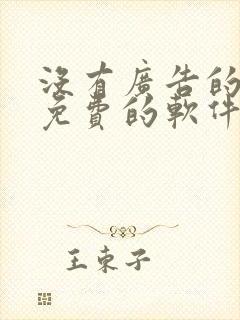 沒有廣告的
免費的軟件
王束子